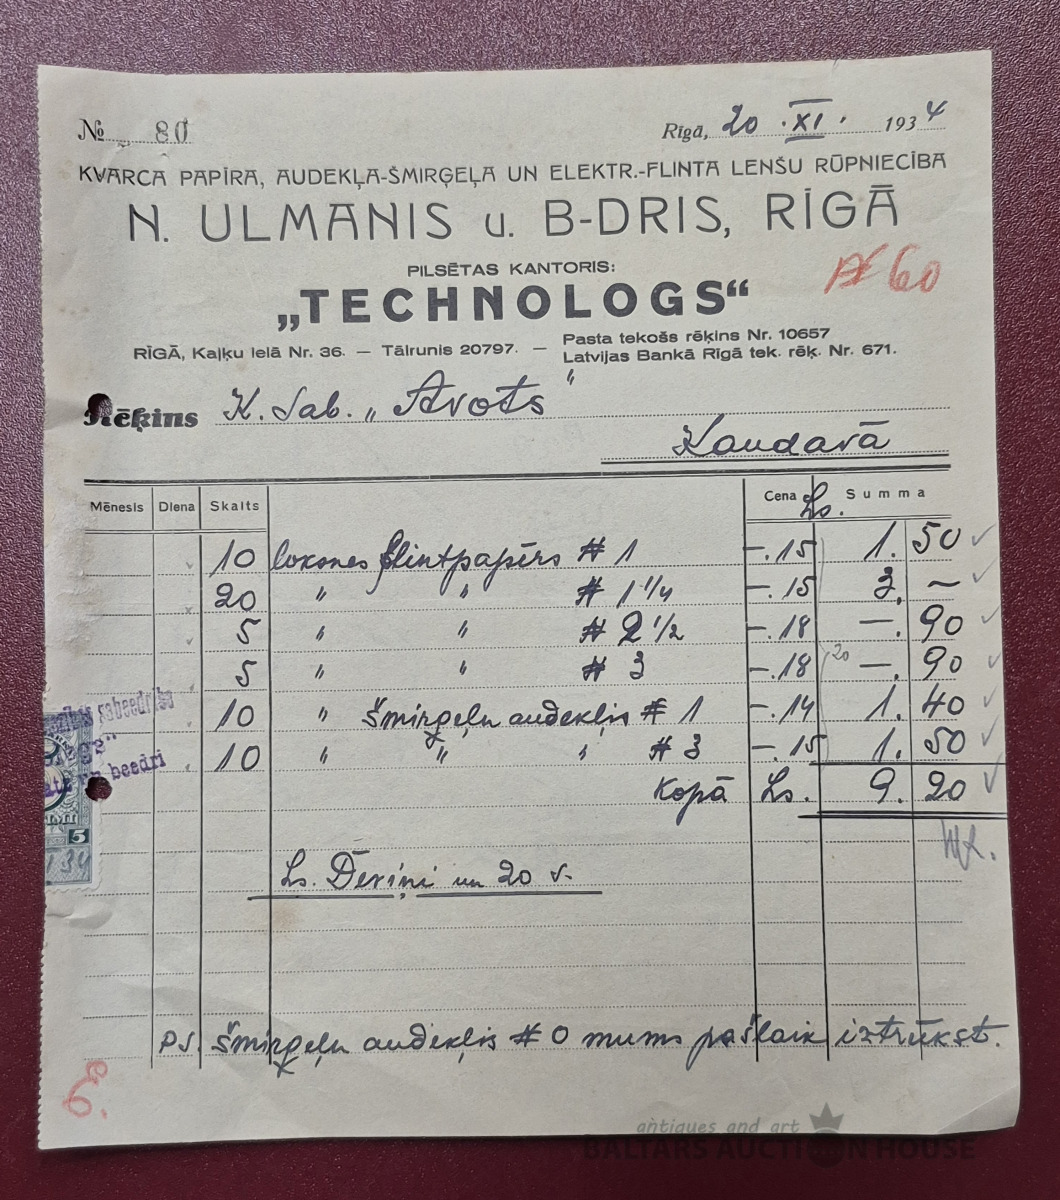 № 80
Rīgā, 20 . XI . 1934
KVARCA PAPĪRA, AUDEKĻA-ŠMIRĢEĻA UN ELEKTR.-FLINTA LENŠU RŪPNIECĪBA
N. ULMANIS u. B-DRIS, RĪGĀ
PILSĒTAS KANTORIS:
„TECHNOLOGS“
60
RĪGĀ, Kaļķu ielā Nr. 36. — Tālrunis 20797. — Pasta tekošs rēķins Nr. 10657
Latvijas Bankā Rīgā tek. rēķ. Nr. 671.
Rēķins K. Sab. „Avots"
Kandavā
Mēnesis Diena Skaits Cena Ls. Summa
10 loksnes flintpapīrs # 1 —.15 1. 50
20 " " # 1 1/4 —.15 3. —
5 " " # 2 1/2 —.18 —. 90
5 " " # 3 —.18 20 —. 90
10 " šmirģeļu audekļis # 1 —.14 1. 40
10 " " " # 3 —.15 1. 50
Kopā Ls. 9. 20
sabeedrība
beedri
5
34
Ls. Deviņi un 20 s.
PS. šmirģeļu audekļis # 0 mums pašlaik iztrūkst.
antiques and art
BALTARS AUCTION HOUSE